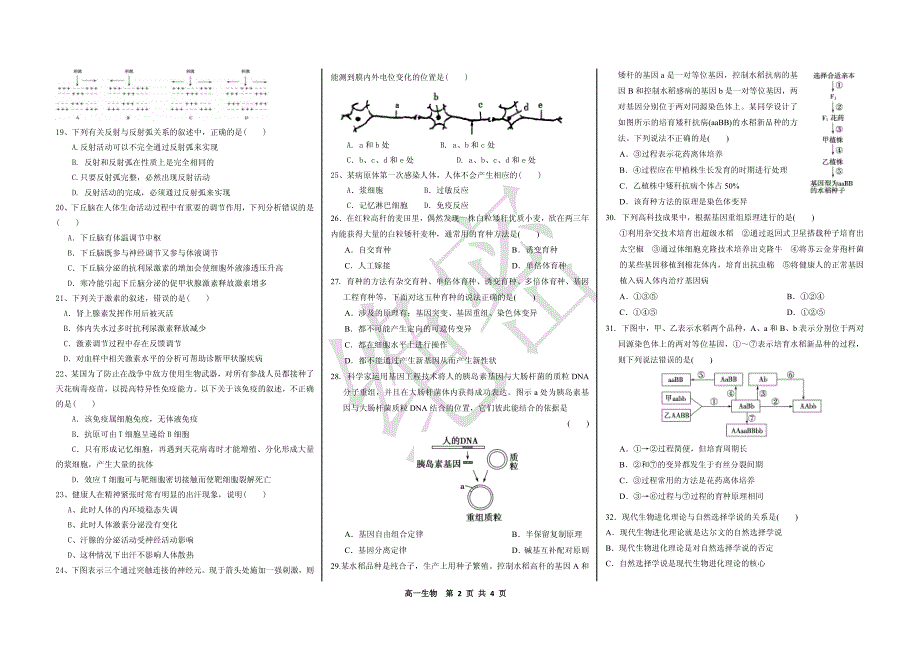 刺激 刺激 刺激 刺激
A B C D
19、下列有关反射与反射弧关系的叙述中，正确的是( )
A.反射活动可以不完全通过反射弧来实现
B. 反射和反射弧在性质上是完全相同的
C.只要反射弧完整，必然出现反射活动
D. 反射活动的完成，必须通过反射弧来实现
20、下丘脑在人体生命活动过程中有重要的调节作用，下列分析错误的是
( )
A、下丘脑有体温调节中枢
B、下丘脑既参与神经调节又参与体液调节
C、下丘脑分泌的抗利尿激素的增加会使细胞外液渗透压升高
D、寒冷能引起下丘脑分泌的促甲状腺激素释放激素增多
21、下列关于激素的叙述，错误的是( )
A、肾上腺素发挥作用后被灭活
B、体内失水过多时抗利尿激素释放减少
C、激素调节过程中存在反馈调节
D、对血样中相关激素水平的分析可帮助诊断甲状腺疾病
22、某国为了防止在战争中敌方使用生物武器，对所有参战人员都接种了
天花病毒疫苗，以提高特异性免疫能力。以下关于该免疫的叙述，不正确
的是( )
A．该免疫属细胞免疫，无体液免疫
B．抗原可由T细胞呈递给B细胞
C．只有形成记忆细胞，再遇到天花病毒时才能增殖、分化形成大量
的浆细胞，产生大量的抗体
D．效应T细胞可与靶细胞密切接触而使靶细胞裂解死亡
23、健康人在精神紧张时常有明显的出汗现象，说明( )
A、此时人体的内环境稳态失调
B、此时人体激素分泌没有变化
C、汗腺的分泌活动受神经调节
D、这种情况下出汗不影响人体散热
24、下图表示三个通过突触连接的神经元。现于箭头处施加一强刺激，则
能测到膜内外电位变化的位置是( )
a b c d e
A．a和b处 B．a处
C、b、c、d和e处 D．a、b、c、d和e处
25、某病原体第一次感染人体，人体不会产生相应的( )
A．浆细胞 B．过敏反应
C．记忆淋巴细胞 D．免疫反应
26、在红粒高杆的麦田里，偶然发现一株白粒矮秆优质小麦，欲在两三年
内能获得大量的白粒矮秆麦种，通常用的育种方法是( )
A．自交育种 B．诱变育种
C．人工嫁接 D．单倍体育种
27．育种的方法有杂交育种、单倍体育种、诱变育种、多倍体育种、基因
工程育种等，下面对这五种育种的说法正确的是( )
A．涉及的原理有：基因突变、基因重组、染色体变异
B．都不可能产生定向的可遗传变异
C．都在细胞水平上进行操作
D．都不能通过产生新基因从而产生新性状
28．科学家运用基因工程技术将人的胰岛素基因与大肠杆菌的质粒DNA
分子重组，并且在大肠杆菌体内获得成功表达。图示a处为胰岛素基
因与大肠杆菌质粒DNA结合的位置，它们彼此能结合的依据是
( )
人的DNA
胰岛素基因
质粒
a
重组质粒
A．基因自由组合定律 B．半保留复制原理
C．基因分离定律 D．碱基互补配对原则
29.某水稻品种是纯合子，生产上用种子繁殖。控制水稻高秆的基因A和
矮秆的基因a是一对等位基因，控制水稻抗病的基
因B和控制水稻感病的基因b是一对等位基因，两
对基因分别位于两对同源色体上。某同学设计了
如图所示的培育矮秆抗病(aaBB)的水稻新品种的方
法。下列说法不正确的是( )
A．③过程表示花药离体培养
B．④过程应在甲植株生长发育的时期进行处理
C．乙植株中矮秆抗病个体占50%
D．该育种方法的原理是染色体变异
选择合适亲本
①
F₁
②
F₁花药
③
甲植株
④
乙植株
⑤
基因型为aaBB
的水稻种子
30．下列高科技成果中，根据基因重组原理进行的是( )
①利用杂交技术培育出超级水稻 ②通过返回式卫星搭载种子培育出
太空椒 ③通过体细胞克隆技术培养出克隆牛 ④将苏云金芽孢杆菌
的某些基因移植到棉花体内，培育出抗虫棉 ⑤将健康人的正常基因
植入病人体内治疗基因病
A．①③⑤ B．①②⑤
C．①④⑤ D．①②③
31．下图中，甲、乙表示水稻两个品种，A、a和B、b表示分别位于两对
同源染色体上的两对等位基因，①～⑦表示培育水稻新品种的过程，
则下列说法错误的是( )
aaBB ⑤ AaBB Ab ⑥
甲aabb ④ ③
① AaBb ② AAbb
乙AABB ⑦
AAaaBBbb
A．①→②过程简便，但培育周期长
B．②和⑦的变异都发生于有丝分裂期间
C．③过程常用的方法是花药离体培养
D．③→⑥过程与⑦过程的育种原理相同
32．现代生物进化理论与自然选择学说的关系是( )
A．现代生物进化理论就是达尔文的自然选择学说
B．现代生物进化理论是对自然选择学说的否定
C．自然选择学说是现代生物进化理论的核心
高一生物 第 2 页 共 4 页